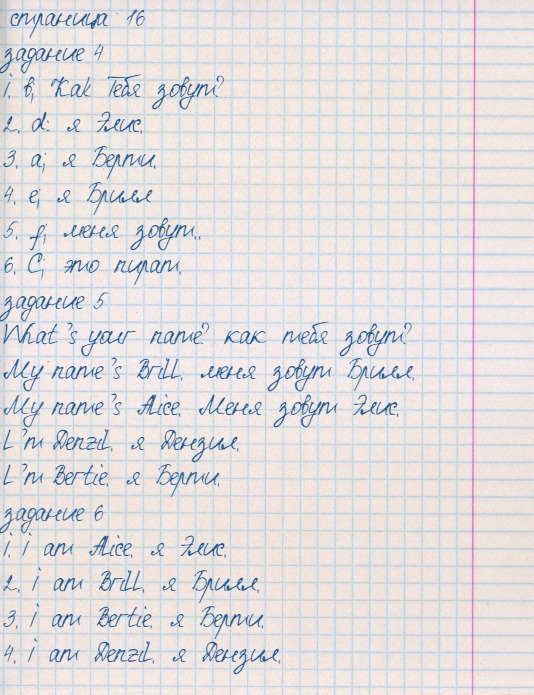 страница 16
задание 4
i. b; Как Тебя зовут?
2. d: я Элис.
3. a; я Берти.
4. e; я Брилл
5. f; меня зовут..
6. C; это пират.
задание 5
What's your name? как тебя зовут?
My name's Brill. меня зовут Брилл.
My name's Alice. Меня зовут Элис.
L'm Denzil. я Дензил.
L'm Bertie. я Берти.
задание 6
i. i am Alice. я Элис.
2. i am Brill. я Брилл.
3. i am Bertie. я Берти.
4. i am Denzil. я Дензил.